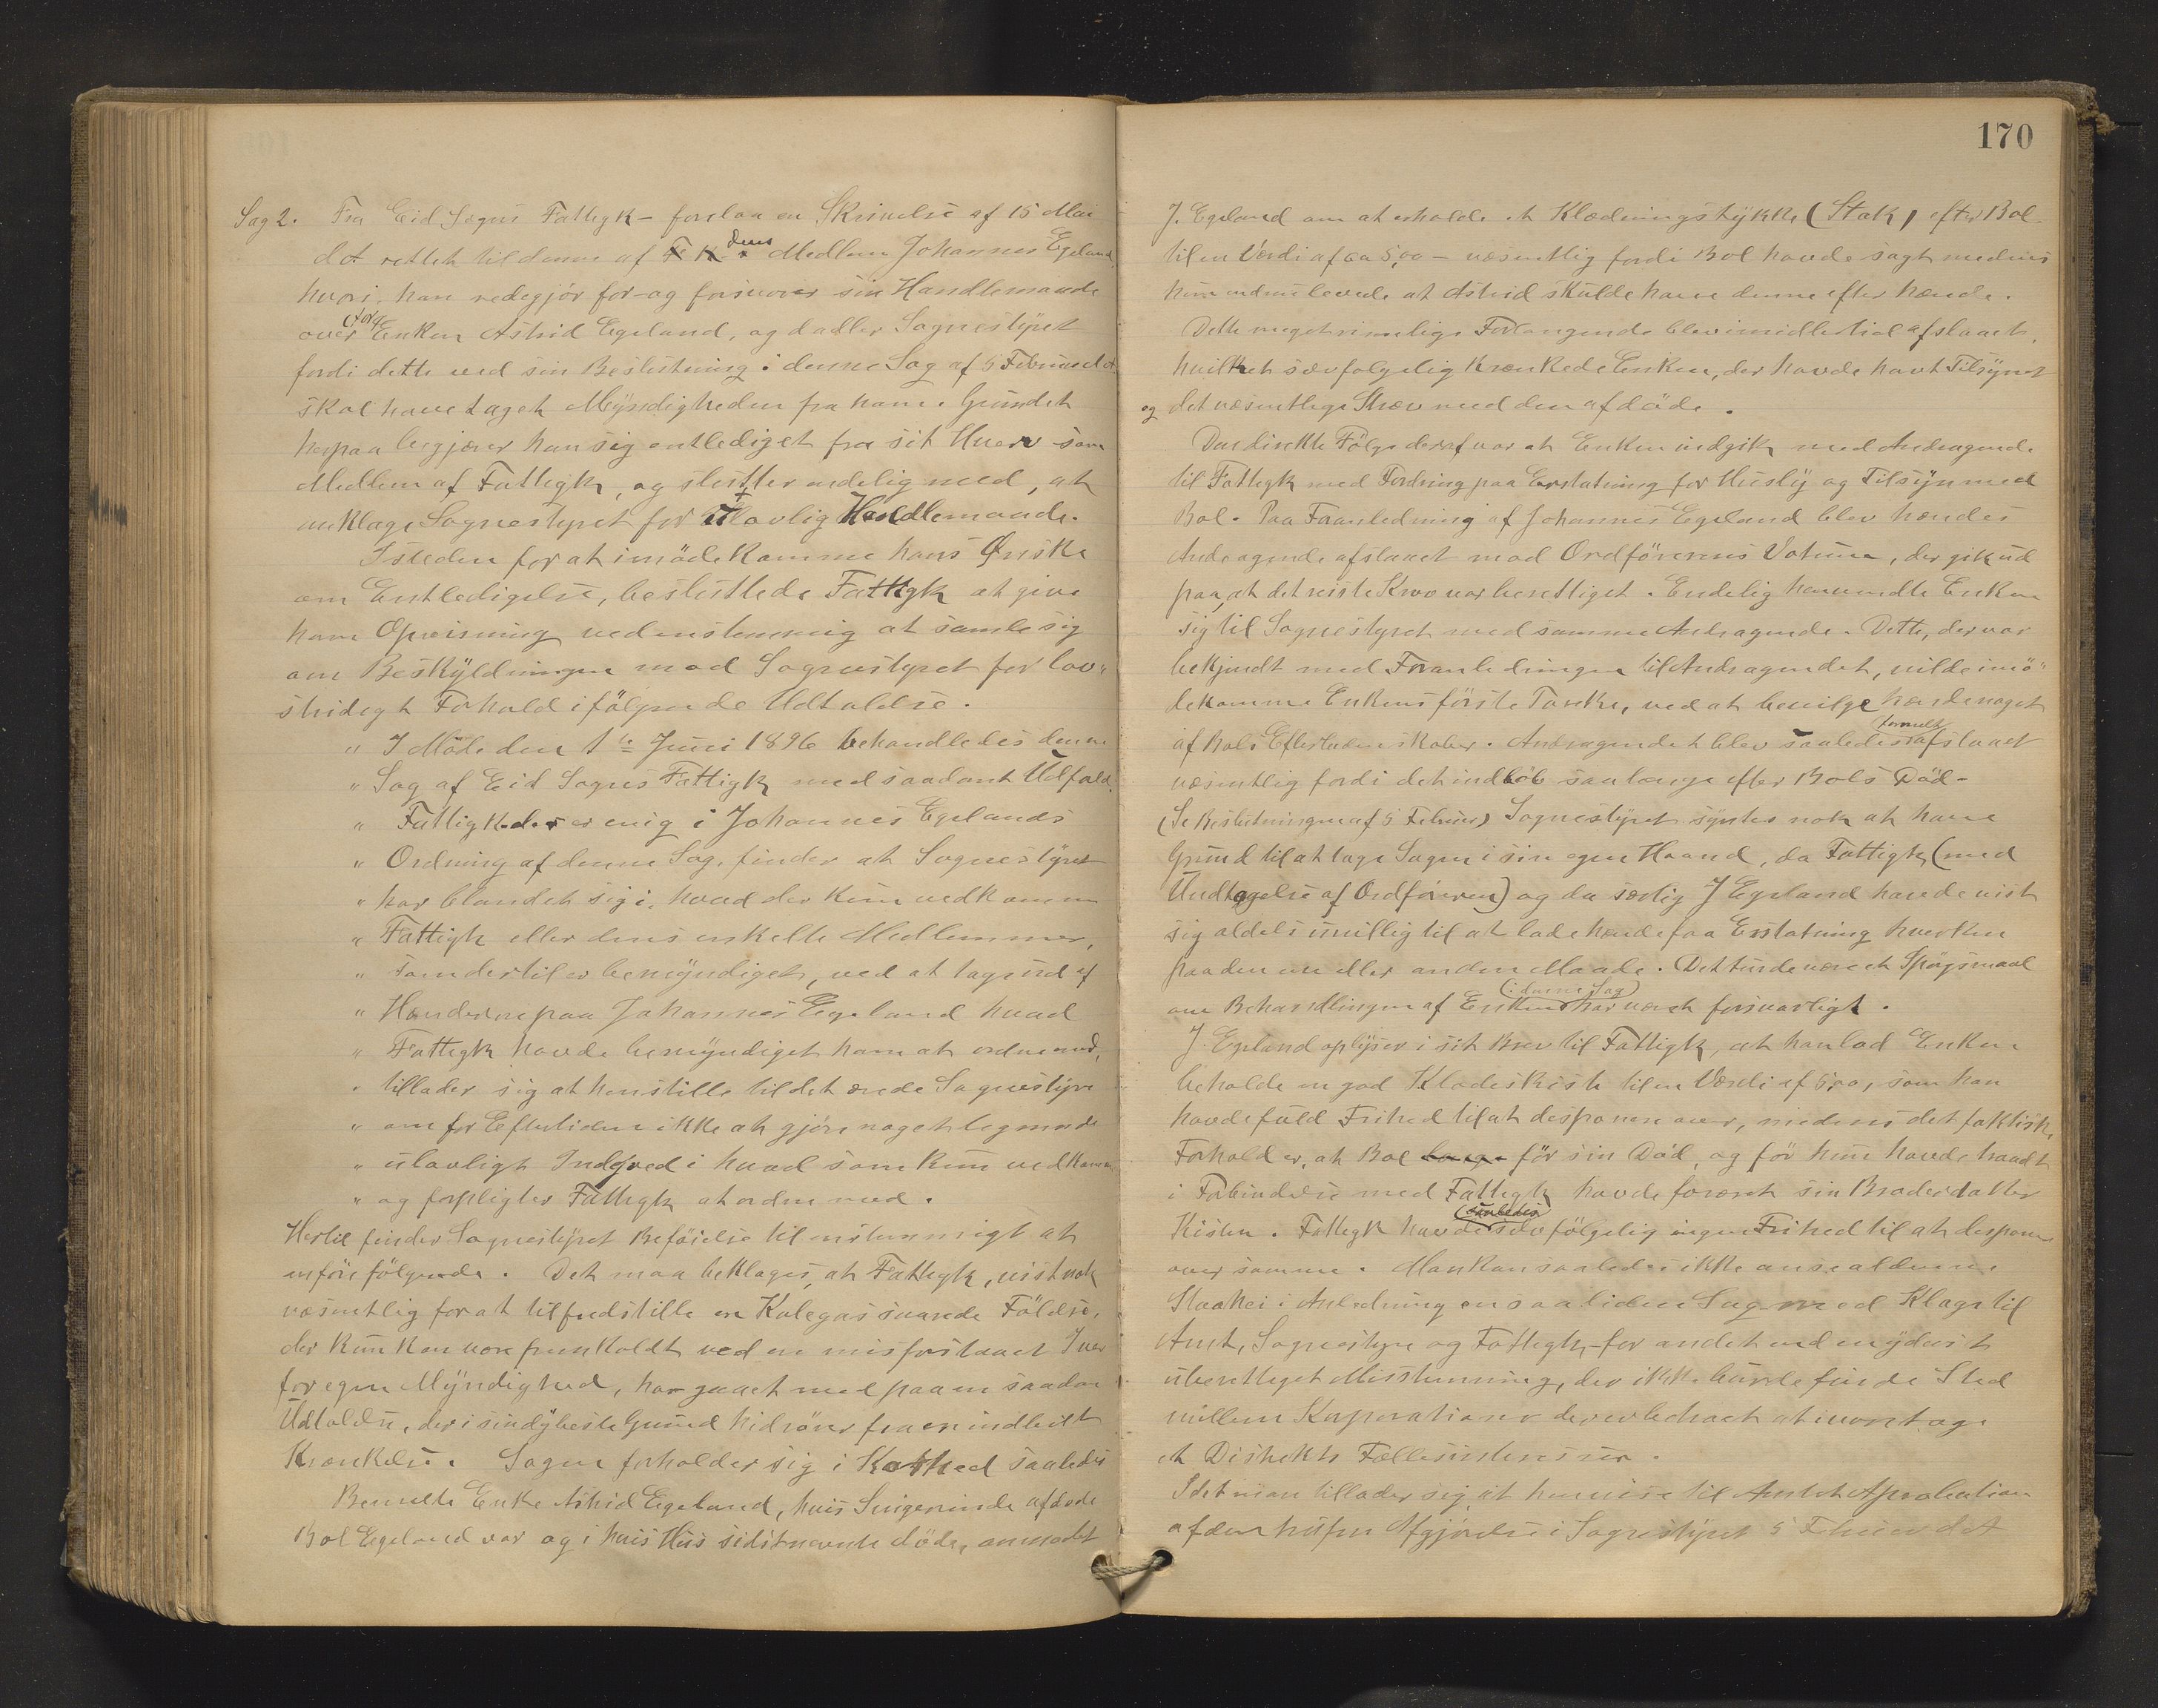 170
Sag 2. Fra Eid Sogns Fattigk - forelaa en Skrivelse af 15 Mai
d.A. rettet til denne af dens Medlem Johannes Egeland,
hvori han redegjör for og forsvarer sin Handlemaade
over for Enken Astrid Egeland, og dadler Sognestyret
fordi dette ved sin Beslutning i denne Sag af 5 Februar d.A.
skal have taget Myndigheden fra ham. Grundet
herpaa begjærer han sig entlediget fra sit Hverv som
Medlem af Fattigk, og slutter endelig med, at
anklage Sognestyret for ulovlig Handlemaade.
Isteden for at imödekomme hans Önske
om Entledigelse, besluttede Fattigk at give
ham Opreisning ved enstemmig at samle sig
om Beskyldningen mod Sognestyret for lov"
stridigt Forhold i fölgende Udtalelse.
" I Möde den 1te Juni 1896 behandledes denne
" Sag af Eid Sogns Fattigk med saadant Udfald.
" Fattigk. der er enig i Johannes Egelands
" Ordning af denne Sag, finder at Sognestyret
" har blandet sig i, hvad der kun vedkommer
" Fattigk eller dens enkelte Medlemmer,
" som dertil er bemyndiget, ved at tage ud af
" Hænderne paa Johannes Egeland hvad
" Fattigk havde bemyndiget ham at ordne med,
" tillader sig at henstille til det ærede Sognestyre
" om for Eftertiden ikke at gjöre noget lignende
" ulovligt Indgreb i hvad som kun vedkommer
" og forpligter Fattigk at ordne med.
Hertil finder Sognestyret Beföielse til enstemmigt at
anföre fölgende. Det maa beklages, at Fattigk, vistnok
væsentlig for at tilfredstille en Kolegas saarede Fölelse,
der kun kan være fremkaldt ved en misforstaaet Iver
for egen Myndighed, har gaaet med paa en saadan
Udtalelse, der i sin dybeste Grund hidrörer fra en indbildt
Krænkelse. Sagen forholder sig i Korthed saaledes
Bemeldte Enke Astrid Egeland, hvis Svigerinde afdöde
Bol Egeland var og i hvis Hus sidstnævnte döde, anmodet
J. Egeland om at erholde et Klædningstykke (Stak) efter Bol
til en Værdi af ca 5,00 - væsentlig fordi Bol havde sagt medens
hun endnu levede at Astrid skulde have denne efter hende.
Dette meget rimelige Forlangende blev imidlertid afslaaet,
hvilket selvfölgelig krænkede Enken, der havde havt Tilsynet
og det væsentlige Stræv med den afdöde.
Den direkte Fölge deraf var at Enken indgik med Andragende
til Fattigk med Fordring paa Erstatning for Husly og Tilsyn med
Bol. Paa Foranledning af Johannes Egeland blev hendes
Andragende afslaaet mod Ordförerens Votum, der gik ud
paa, at det reiste Krav var berettiget. Endelig henvendte Enken
sig til Sognestyret med samme Andragende. Dette, der var
bekjendt med Foranledningen til Andragendet, vilde imö"
dekomme Enkens förste Tanke, ved at bevilge hende noget
af Bols Efterladenskaber. Andragendet blev saaledes formelt afslaaet
væsentlig fordi det indlöb saa længe efter Bols Död-
(Se Beslutningen af 5 Februar) Sognestyret syntes nok at have
Grund til at tage Sagen i sin egen Haand, da Fattigk, (med
Undtagelse af Ordföreren) og da særlig J Egeland havde vist
sig aldeles uvillig til at lade hende faa Erstatning hverken
paa den ene eller anden Maade. Det turde være et Spörgsmaal
om Behandlingen af Enken (i denne Sag) har været forsvarligt.
J. Egeland oplyser i sit Brev til Fattigk, at han lod Enken
beholde en god Klædeskiste til en Værdi af 5,00, som han
havde fuld Frihed til at desponere over, medens det faktiske
Forhold er, at Bol för sin Död, og för hun havde havdt
i Forbindelse med Fattigk havde foræret sin Broderdatter
Kisten. Fattigk havde saaledes selvfölgelig ingen Frihed til at desponere
over samme. Man kan saaledes ikke anse al denne
Staahei i Anledning en saa liden Sag med Klage til
Amt, Sognestyre og Fattigk, for andet end en yderst
uberettiget Misstemning, der ikke burde finde Sted
mellem Korporationer der er betroet at ivaretage
et Distrikts Fællesinteresser.
Idet man tillader sig at henvise til Amtets Aprobation
af den trufne Afgjörelse i Sognestyret 5 Februar d.A